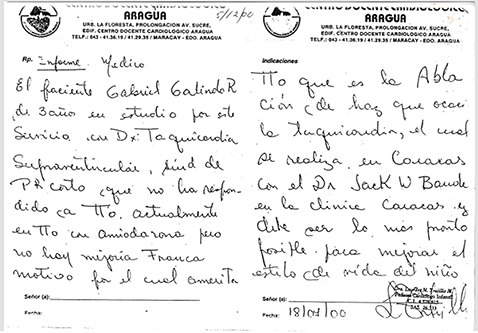 CENTRO DOCENTE CARDIOLOGICO
ARAGUA
URB. LA FLORESTA, PROLONGACION AV. SUCRE,
EDIF. CENTRO DOCENTE CARDIOLOGICO ARAGUA
TELF.: 043 - 41.36.19 / 41.29.35 / MARACAY - EDO. ARAGUA
5/12/00
Rp. Informe Medico
El paciente Gabriel Galindo R
de 3 año en estudio por este
Servicio, con Dx: Taquicardia
Supraventricular, sind de
PR corto, que no ha respon-
dido a TTo. actualmente
en TTo con amiodarona pero
no hay mejoria Franca
motivo por el cual amerita
Señor (a):
Fecha:
CENTRO DOCENTE CARDIOLOGICO
ARAGUA
URB. LA FLORESTA, PROLONGACION AV. SUCRE,
EDIF. CENTRO DOCENTE CARDIOLOGICO ARAGUA
TELF.: 043 - 41.36.19 / 41.29.35 / MARACAY - EDO. ARAGUA
Indicaciones
TTo que es la Abla
ción de haz que
la taquicardia, el cual
se realiza en Caracas
con el Dr Jack W
en la clinica Caracas y
debe ser lo mas pronto
posible para mejorar el
estilo de vida del niño
Señor(a):
Fecha: 18/07/00